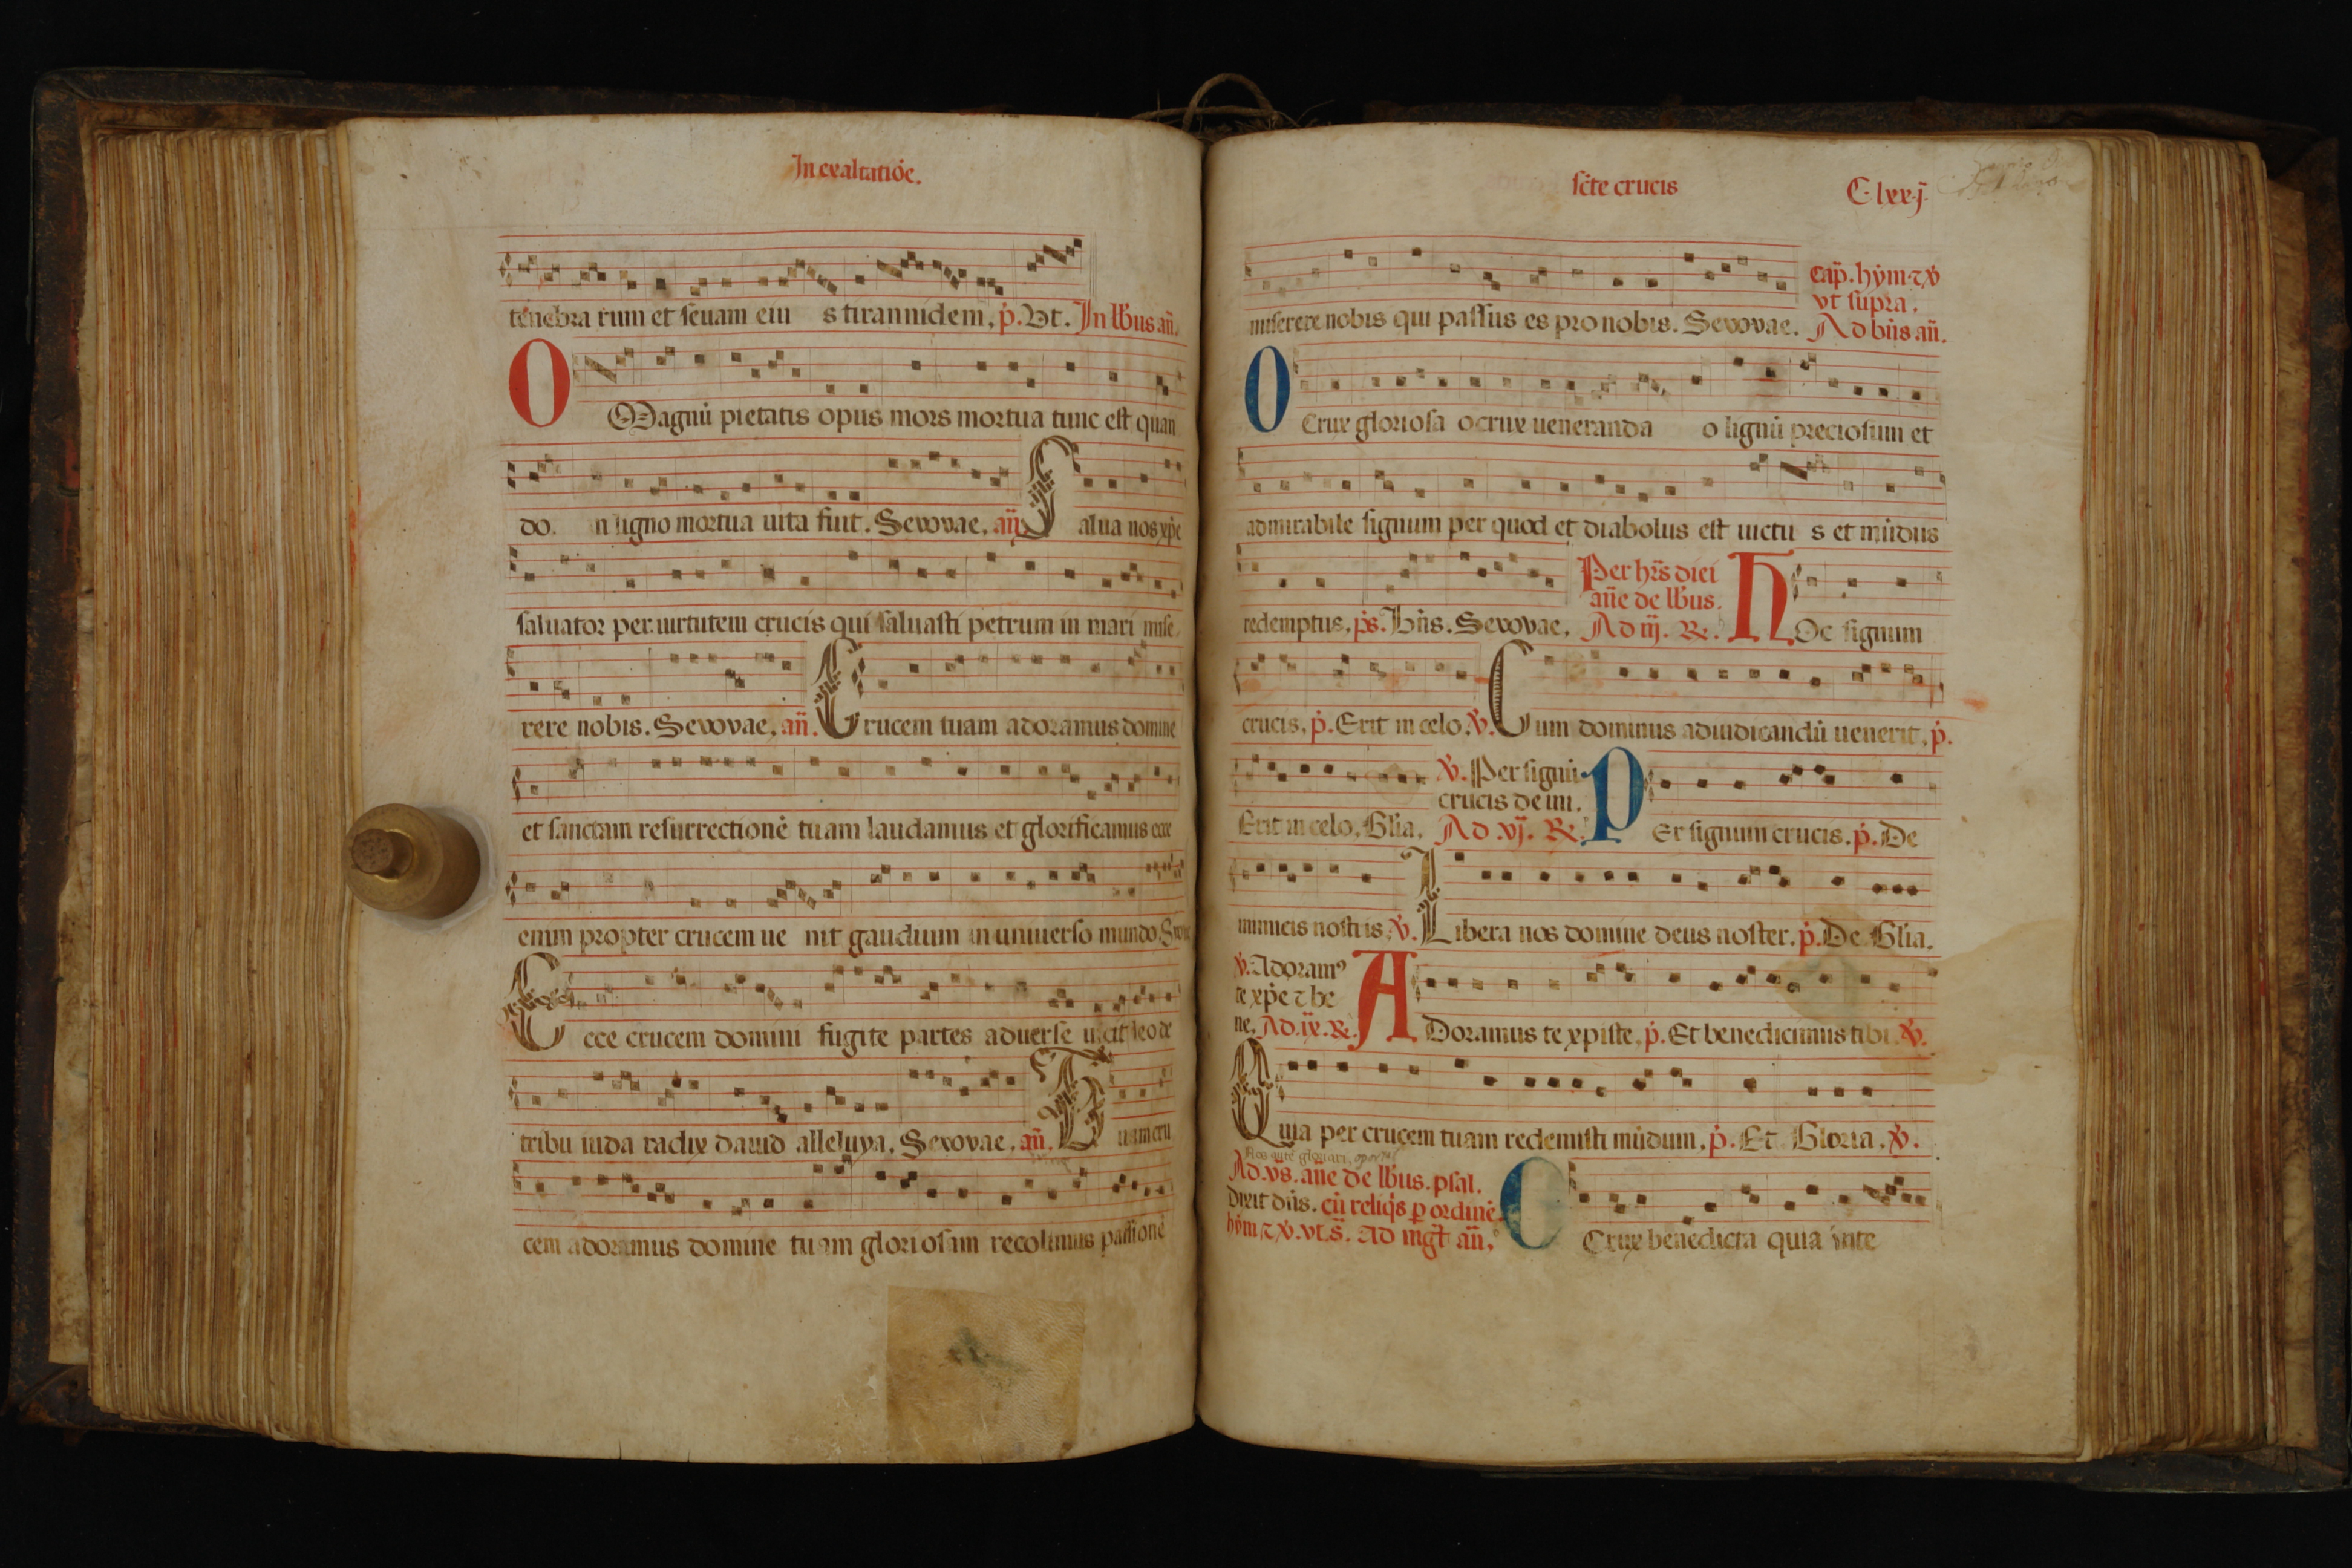 In exaltatiõe.
tenebra rum et seuam eiu s tirannidem, p̃. Vt. In lb̃us añ.
O Magnũ pietatis opus mors mortua tunc est quan
do. in ligno mortua uita fuit. Sevovae, añ. Salua nos xp̃e
saluator per uirtutem crucis qui saluasti petrum in mari mise
rere nobis. Sevovae, añ. Crucem tuam adoramus domine
et sanctam resurrectionẽ tuam laudamus et glorificamus ecce
enim propter crucem ue nit gaudium in uniuerso mundo. Sevovae
Ecce crucem domini fugite partes aduerse uicit leo de
tribu iuda radix dauid alleluya, Sevovae, añ. Tuam cru
cem adoramus domine tuam gloriosam recolimus passionẽ
sc̃te crucis
C lxxj
miserere nobis qui passus es pro nobis. Sevovae.
Cap̃. hym̃ ⁊ v̇
vt supra.
Ad bñs añ.
O Crux gloriosa o crux ueneranda o lignũ preciosum et
admirabile signum per quod et diabolus est uictu s et mũdus
redemptus, p̃s. Bñs. Sevovae,
Per hr̃s diei
añe de lb̃us.
Ad iij. R.
HOc signum
crucis, p̃. Erit in celo. v̇. Cum dominus ad iudicandũ uenerit, p̃.
Erit in celo, Gl̃ia,
v̇. Per signũ
crucis de ini.
Ad vj. R.
PEr signum crucis. p̃. De
inimicis nostris, v̇. Libera nos domine deus noster. p̃. De Gl̃ia,
v̇. Adoramꝰ
te xp̃e ⁊ be
ne, Ad. ix. R.
ADoramus te xpiste, p̃. Et benedicimus tibi. v̇.
Quia per crucem tuam redemisti mũdum, p̃. Et Gloria, v̇.
Nos autẽ gloriari oportet
Ad. vs. añe de lb̃us. psal.
Dixit dñs. cũ reliq̃s p ordinẽ
hym̃ ⁊ v̇. vt s̃. Ad mgt̃ añ,
O Crux benedicta quia inte